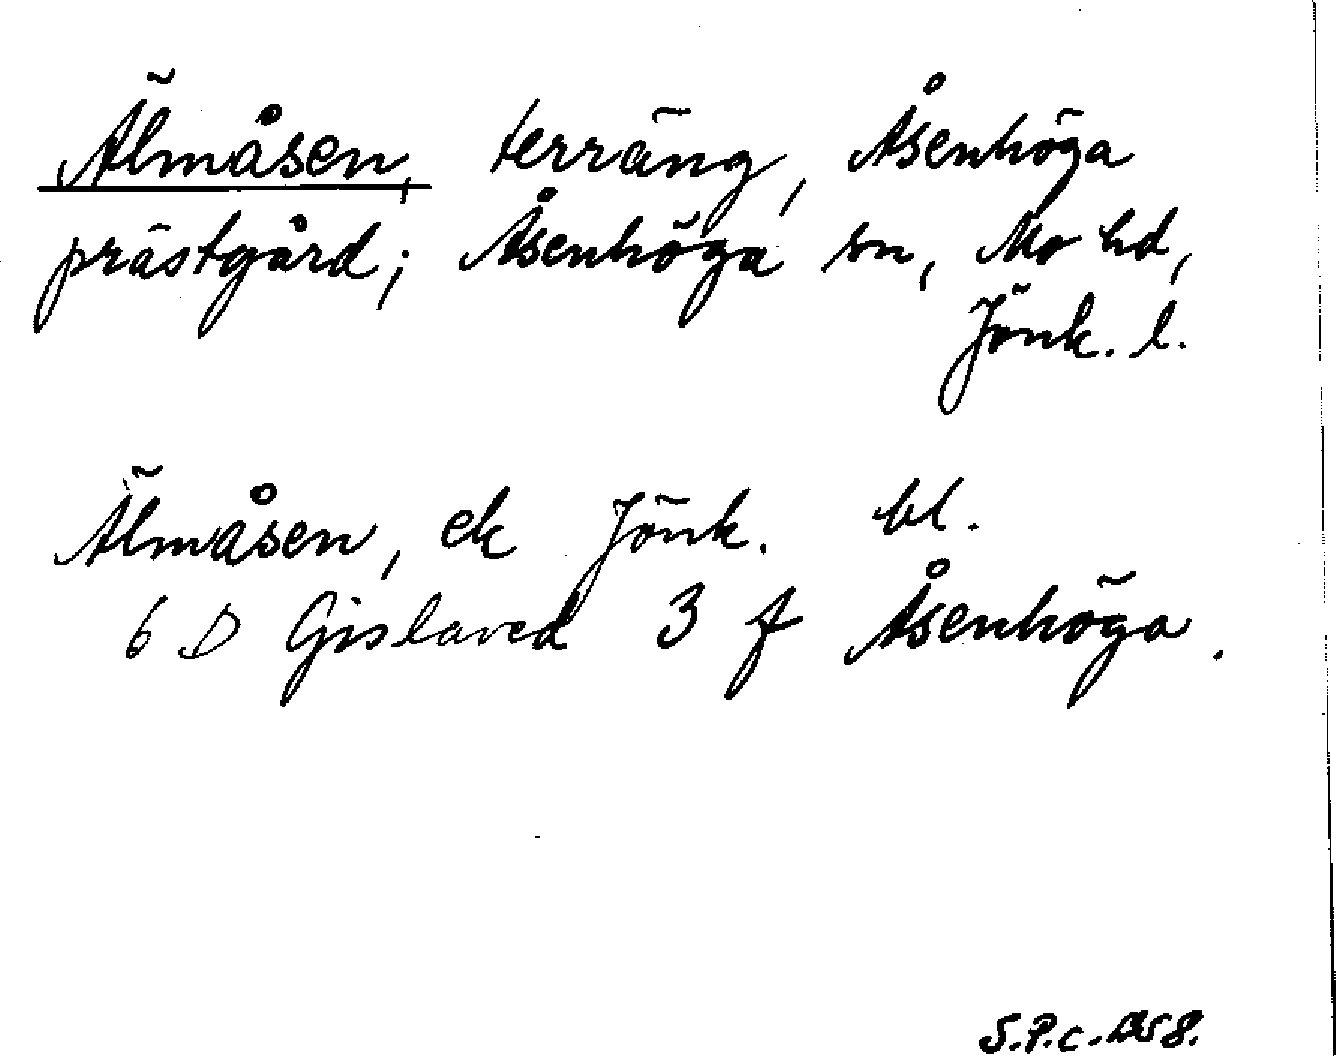 Älmåsen, terräng, Åsenhöga
prästgård; Åsenhöga sn, Mo hd,
Jönk. l.
Älmåsen, ek Jönk. bl.
6 D Gislaved 3 f Åsenhöga.
S.P.c.